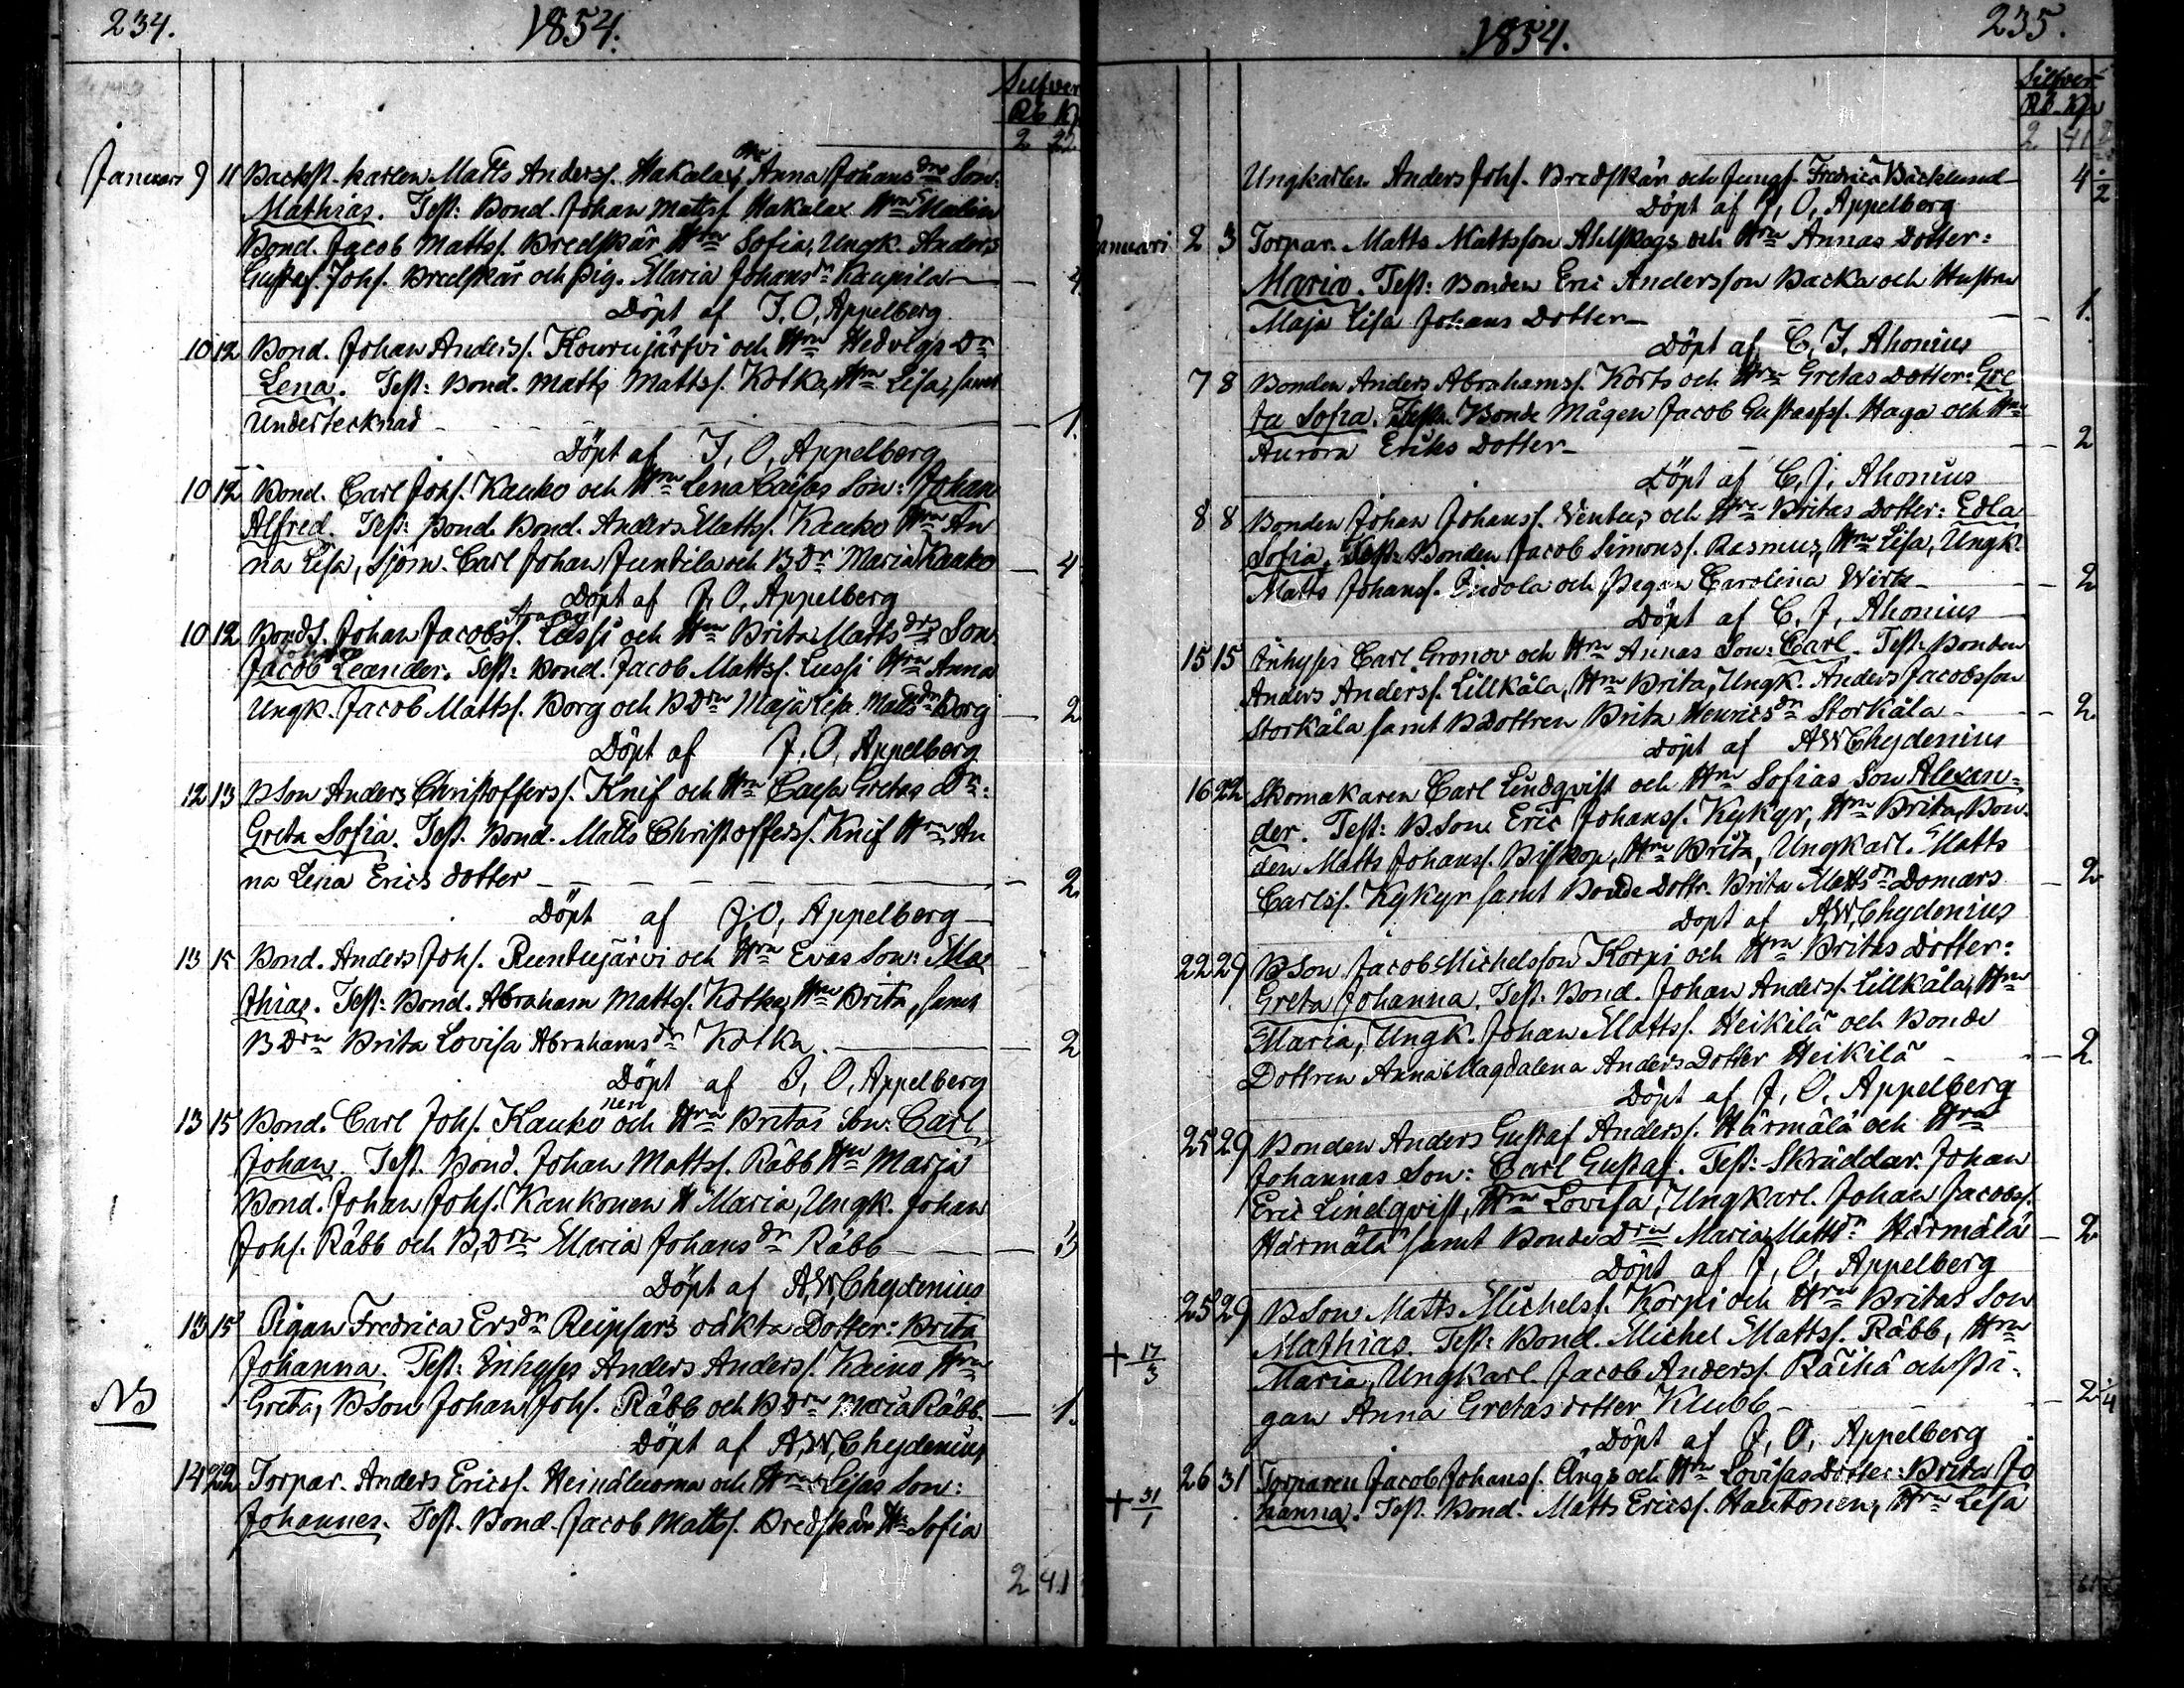 234.
1854.
Silfver
Rb K
2 22
Januari 9 11 Backst. karlen Matts Anders s. Hakalax, Hru Anna Johans dra Son:
Mathias. Test: Bond. Johan Matts s. Hakalax Hru Malin
Bond. Jacob Matts s. Bredskär Hru Sofia, Ungk. Anders
Gustaf Joh s. Bredskär och pig. Maria Johans dr Kaupila — 4.
Döpt af J. O. Appelberg
10 12 Bond. Johan Anders s. Kourujärfvi och Hru Hedvigs Dr
Lena. Test: Bond. Matts Matts s. Kotka, Hru Lisa, samt
Undertecknad — 1.
Döpt af J. O. Appelberg
10 12 Bond. Carl Joh s. Kauko och Hru Lena Caisas Son: Johan
Alfred. Test: Bond. Bond. Anders Matts s. Kauko Hru An
na Lisa, Sjöm. Carl Johan Juntila och B Dr Maria Kauko — 4
Döpt af J. O. Appelberg
10 12 Bonds. Johan Jacobs s. Lassi och Hru Brita Matts drs Son
Johan
Jacob Leander. Test: Bond. Jacob Matts s. Lussi Hru Anna
Ungk. Jacob Matts s. Borg och B Dru Maja Lisa Matts dr Borg — 2
Döpt af J. O. Appelberg
12 13 B Son Anders Christoffers s. Knif och Hru Caisa Gretas Dr:
Greta Sofia. Test. Bond. Matts Christoffers s. Knif Hru An
na Lena Erics dotter — 2.
Döpt af J. O. Appelberg
13 15 Bond. Anders Joh s. Runtujärvi och Hru Evas Son: Ma
thias. Test: Bond. Abraham Matts s. Kotka, Hru Brita, samt
B Dru Brita Lovisa Abrahams dr Kotka — 2
Döpt af J. O. Appelberg
13 15 Bond. Carl Joh s. Kaukonen och Hru Britas Son: Carl
Johan. Test. Bond. Johan Matts s. Räbb Hru Marja
Bond. Johan Joh s. Kaukonen H Maria, Ungk. Johan
Joh s. Räbb och B, Dru Maria Johans dr Räbb — 3
Döpt af A, W, Chydenius
13 15 Pigan Fredrica Ers dr Reipsars oäkta Dotter: Brita
Johanna. Test: Inhyses Anders Anders s. Kaino Hru
NB Greta, B Son Johan Joh s. Räbb och B Dru Maria Räbb — 1.
Döpt af A, W, Chydenius
14 22 Torpar. Anders Erics s. Heinäluoma och Hru Lisas Son:
Johannes. Test. Bond. Jacob Matts s. Bredskär Hr Sofia
2 41
1854.
235.
Silfver
Rb. Kp
2 41
Ungkarlen Anders Joh s. Bredskär och Jungf. Fredrica Bäcklund — 4. 2
Döpt af J, O, Appelberg
Januari 2 3 Torpar. Matts Mattsson Ahlskogs och Hru Annas Dotter:
Maria. Test: Bonden Eric Andersson Backa och Hustru
Maja Lisa Johans Dotter — 1.
Döpt af C. J. Ahonius
7 8 Bonden Anders Abrahams s. Korts och Hru Gretas Dotter: Gre
ta Sofia. Test: Bonde Mågen Jacob Gustafs s. Haga och Hru
Aurora Eriks Dotter — 2
Döpt af C, J, Ahonius
8 8 Bonden Johan Johans s. Ventus och Hru Britas Dotter: Edla
Sofia. Test: Bonden Jacob Simons s. Rasmus, Hru Lisa, Ungk.
Matts Johans s. Indola och Pigan Carolina Wirta — 2
Döpt af C, J, Ahonius
15 15 Inhyses Carl Gronov och Hru Annas Son: Carl. Test: Bonden
Anders Anders s. Lillkåla, Hru Brita, Ungk. Anders Jacobsson
Storkåla samt B Dottren Brita Henrics dr Storkåla — 2.
Döpt af A W Chydenius
16 22 Skomakaren Carl Lindqvist och Hru Sofias Son Alexan-
der. Test: B Son. Eric Johans s. Kykyr, Hru Brita, Bon-
den Matts Johans s. Biskop, Hru Brita, Ungkarl. Matts
Carls s. Kykyr samt Bonde Dottr. Brita Matts dr Domars — 2
Döpt af A, W, Chydenius
22 29 B Son Jacob Michelsson Korpi och Hru Britas Dotter:
Greta Johanna. Test: Bond. Johan Anders s. Lillkåla, Hru
Maria, Ungk. Johan Matts s. Heikilä och Bonde
Dottren Anna Magdalena Anders Dotter Heikilä — 2.
Döpt af J. O. Appelberg
25 29 Bonden Anders Gustaf Anders s. Härmälä och Hru
Johannas Son: Carl Gustaf. Test: Skräddar. Johan
Eric Lindqvist, Hru Lovisa, Ungkarl. Johan Jacobs s.
Härmälä samt Bonde Dru Maria Matts dr Härmälä — 2
Döpt af J, O, Appelberg
25 29 B Son Matts Michels s. Korpi och Hru Britas Son
+ 17/3 Mathias. Test: Bond. Michel Matts s. Räbb, Hru
Maria, Ungkarl Jacob Anders s. Räihä och Pi-
gan Anna Gretas dotter Klubb — 2 1/4
Döpt af J, O, Appelberg
26 31 Torparen Jacob Johans s. Ängs och Hru Lovisas Dotter: Brita Jo
+ 31/1 hanna. Test. Bond. Matts Erics s. Hautonen, Hru Lisa